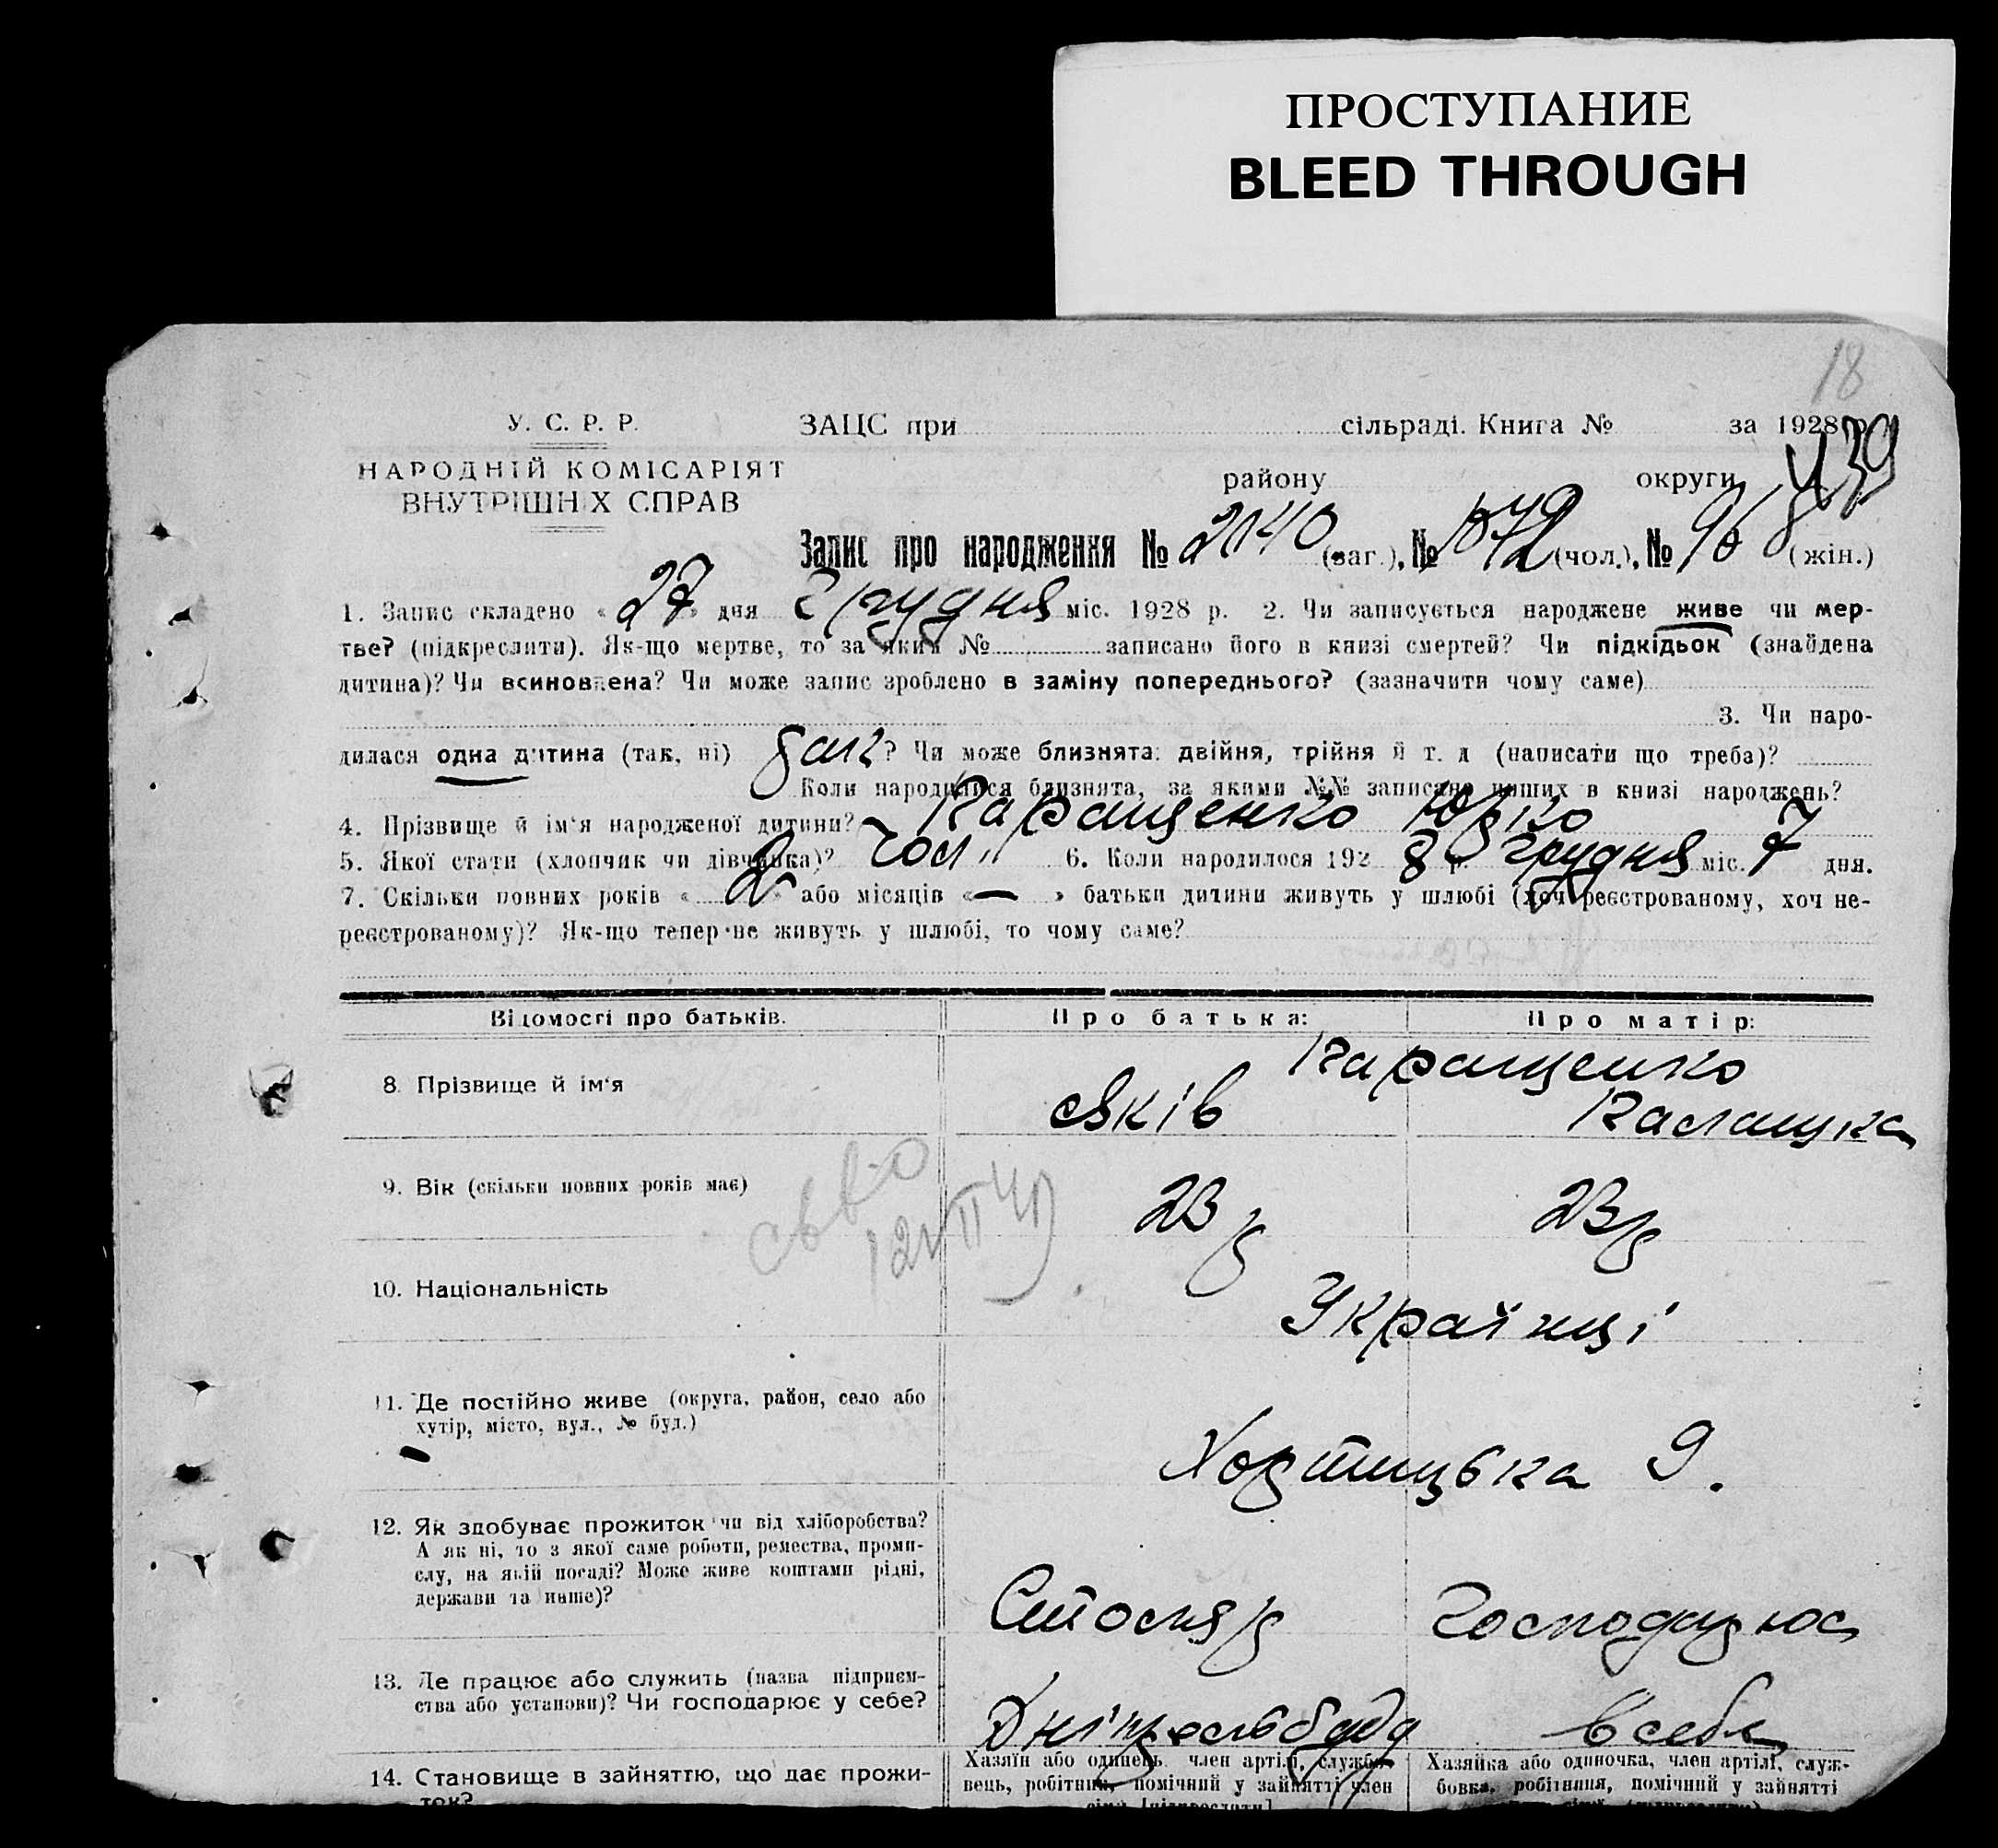 ПРОСТУПАНИЕ
BLEED THROUGH
18
У. С. Р. Р. ЗАЦС при сільраді. Книга № за 1928 р.
439
НАРОДНІЙ КОМІСАРІЯТ району округи
ВНУТРІШНІХ СПРАВ
Запис про народження № 2040 (заг.), № 1072 (чол.), № 968 (жін.)
1. Запис складено «27» дня Грудня міс. 1928 р. 2. Чи записується народжене живе чи мер-
тве? (підкреслити). Як-що мертве, то за яким № записано його в книзі смертей? Чи підкідьок (знайдена
дитина)? Чи всиновлена? Чи може запис зроблено в заміну попереднього? (зазначити чому саме)
3. Чи наро-
дилася одна дитина (так, ні) ? Чи може близнята: двійня, трійня й т. д (написати що треба)?
Коли народилися близнята, за якими №№ записано инших в книзі народжень?
4. Прізвище й ім'я народженої дитини? Каращенко Юрко
5. Якої стати (хлопчик чи дівчинка)? Чол. 6. Коли народилося 1928 р. Грудня міс. 7 дня.
7. Скільки повних років «2» або місяців «—» батьки дитини живуть у шлюбі (хоч реєстрованому, хоч не-
реєстрованому)? Як-що тепер не живуть у шлюбі, то чому саме?
Відомості про батьків. Про батька: Про матір:
8. Прізвище й ім'я Каращенко
Яків
9. Вік (скільки повних років має) 23 р 23 р
10. Національність Українці
11. Де постійно живе (округа, район, село або
хутір, місто, вул., № буд.)
Хортицька 9.
12. Як здобуває прожиток чи від хліборобства?
А як ні, то з якої саме роботи, ремества, проми-
слу, на якій посаді? Може живе коштами рідні,
держави та инше)?
Столяр Господарює
13. Де працює або служить (назва підприєм-
ства або установи)? Чи господарює у себе?
Дніпрельбуду в себе
14. Становище в зайняттю, що дає прожи-
ток?
Хазяїн або одинець, член артілі, службо-
вець, робітник, помічний у зайнятті член
сім'ї [підкреслити]
Хазяйка або одиночка, член артілі, служ-
бовка, робітниця, помічний у зайнятті